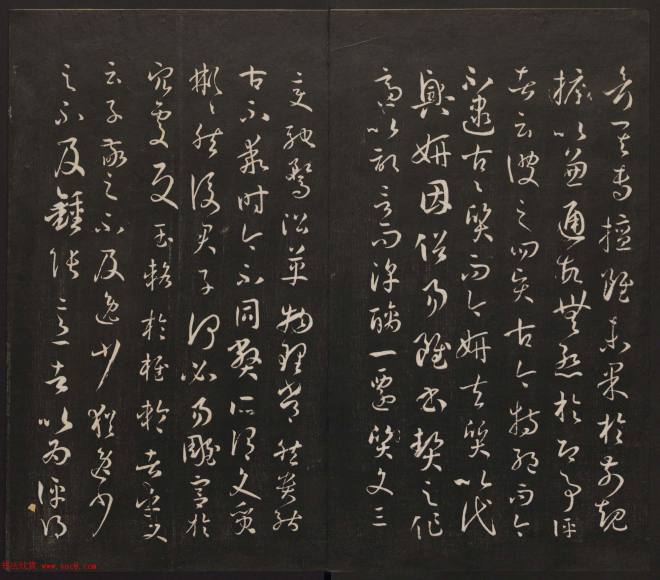 考其專擅雖未果於前規
摭以兼通故無慙於即事評
者云彼之四賢古今特絶而今
不逮古古質而今妍夫質以代
興妍因俗易雖書契之作
適以記言而淳醨一遷質文三
變馳騖沿革物理常然貴能
古不乖時今不同弊所謂文質
彬彬然後君子何必易雕宮於
穴處反玉輅於椎輪者乎又
云子敬之不及逸少猶逸少
之不及鍾張意者以為評得
书法欣赏 www.yac8.com